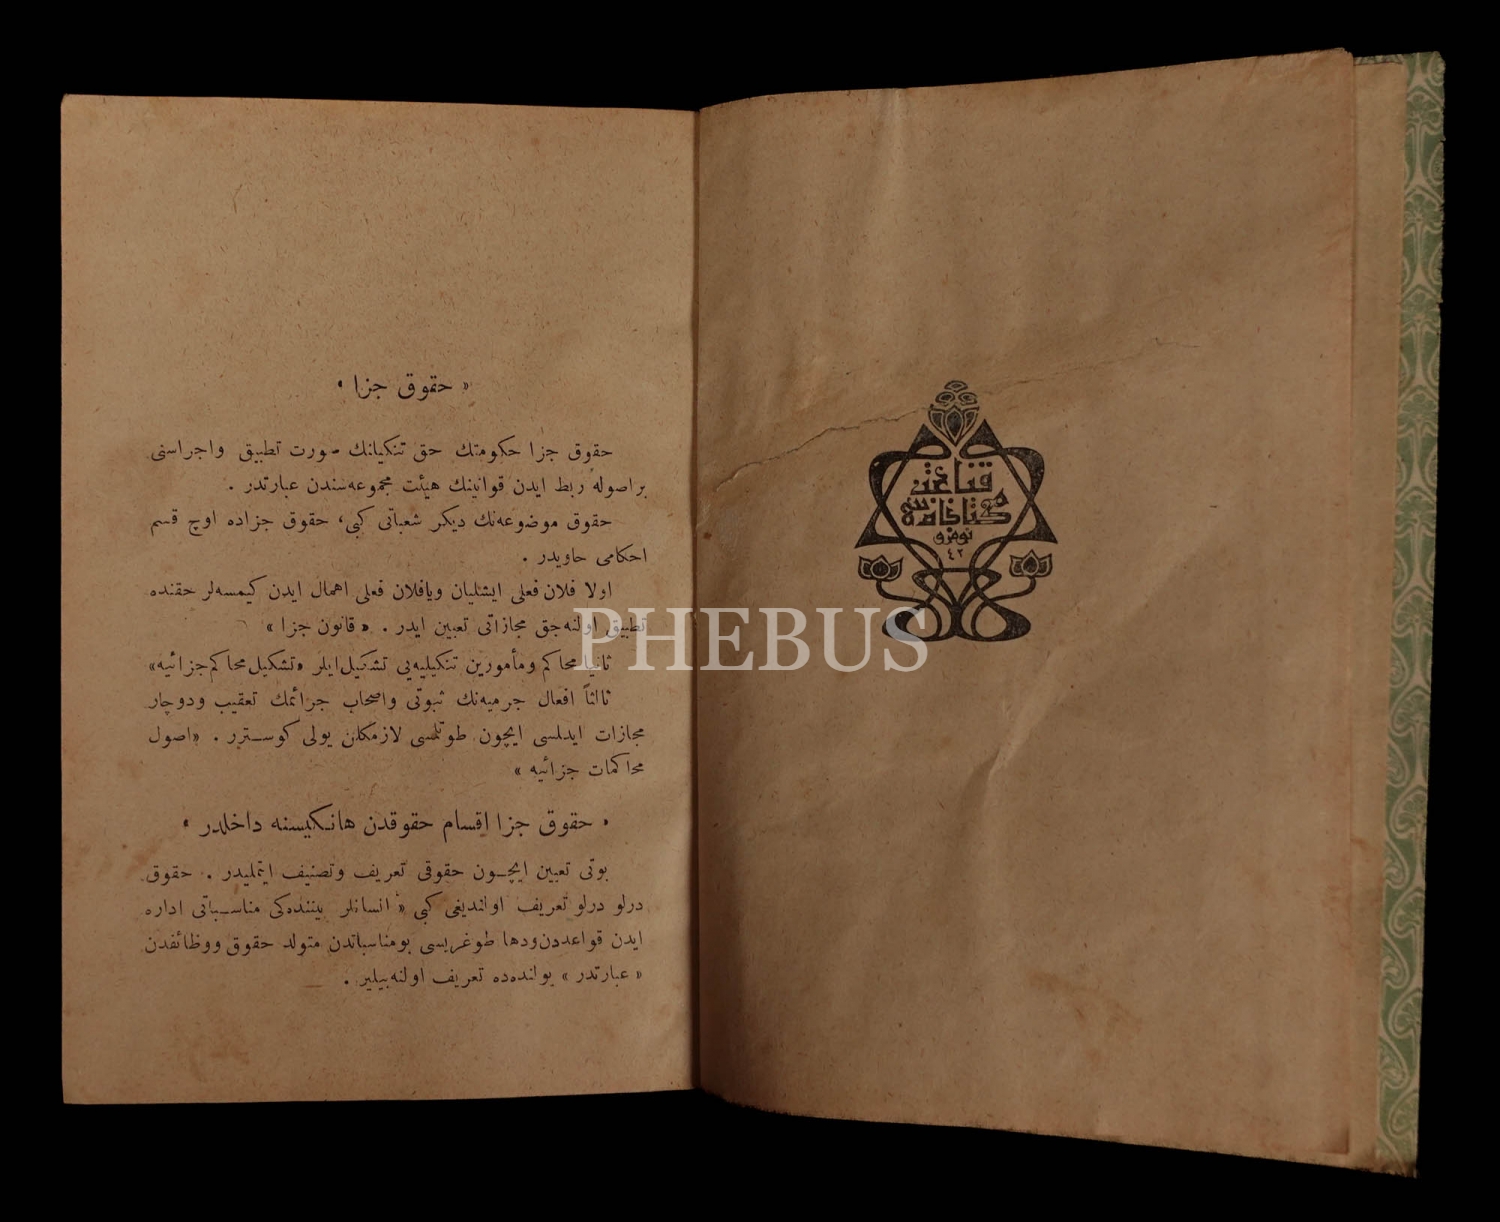 قناعت
كتابخانه سی
نومرو
٤٢
« حقوق جزا »
حقوق جزا حكومتك حق تنكيلنك صورت تطبيق واجراسنی
بر اصوله ربط ايدن قوانينك هيئت مجموعه‌سندن عبارتدر .
حقوق موضوعه‌نك ديكر شعباتی كبی، حقوق جزاده اوچ قسم
احكامی حاويدر .
اولا فلان فعلی ايشليان ويافلان فعلی اهمال ايدن كيمسه‌لر حقنده
تطبيق اولنه‌جق مجازاتی تعيين ايدر . « قانون جزا »
ثانيا محاكم ومأمورين تنكيليه‌يی تشكيل ايلر «تشكيل محاكم جزائيه»
ثالثاً افعال جرميه‌نك ثبوتی واصحاب جرائمك تعقيب ودوچار
مجازات ايدلسی ايچون طوتلمسی لازمكلن يولی كوسترر . «اصول
محاكمات جزائيه »
« حقوق جزا اقسام حقوقدن هانكيسنه داخلدر »
بونی تعيين ايچون حقوقی تعريف وتصنيف ايتمليدر . حقوق
درلو درلو تعريف اولنديغی كبی « انسانلر بيننده‌كی مناسباتی اداره
ايدن قواعددن‌ودها طوغريسی بومناسباتدن متولد حقوق ووظائفدن
« عبارتدر » يولنده‌ده تعريف اولنه‌بيلير .
PHEBUS